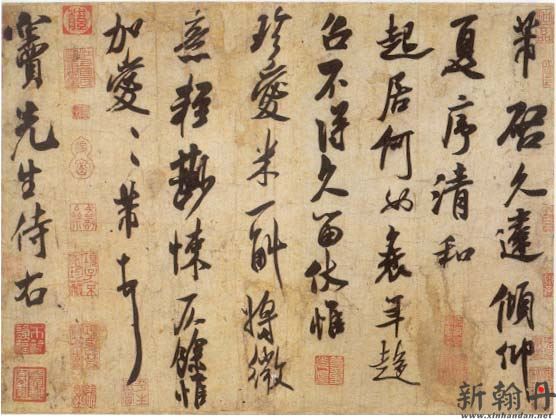 芾啓久違傾仰
夏序清和
起居何如衰年趍
召不得久留伏惟
珍愛米一斛將微
意輕尠悚仄餘惟
加愛〻芾頓首
竇先生侍右
新翰丹
www.xinhandan.net